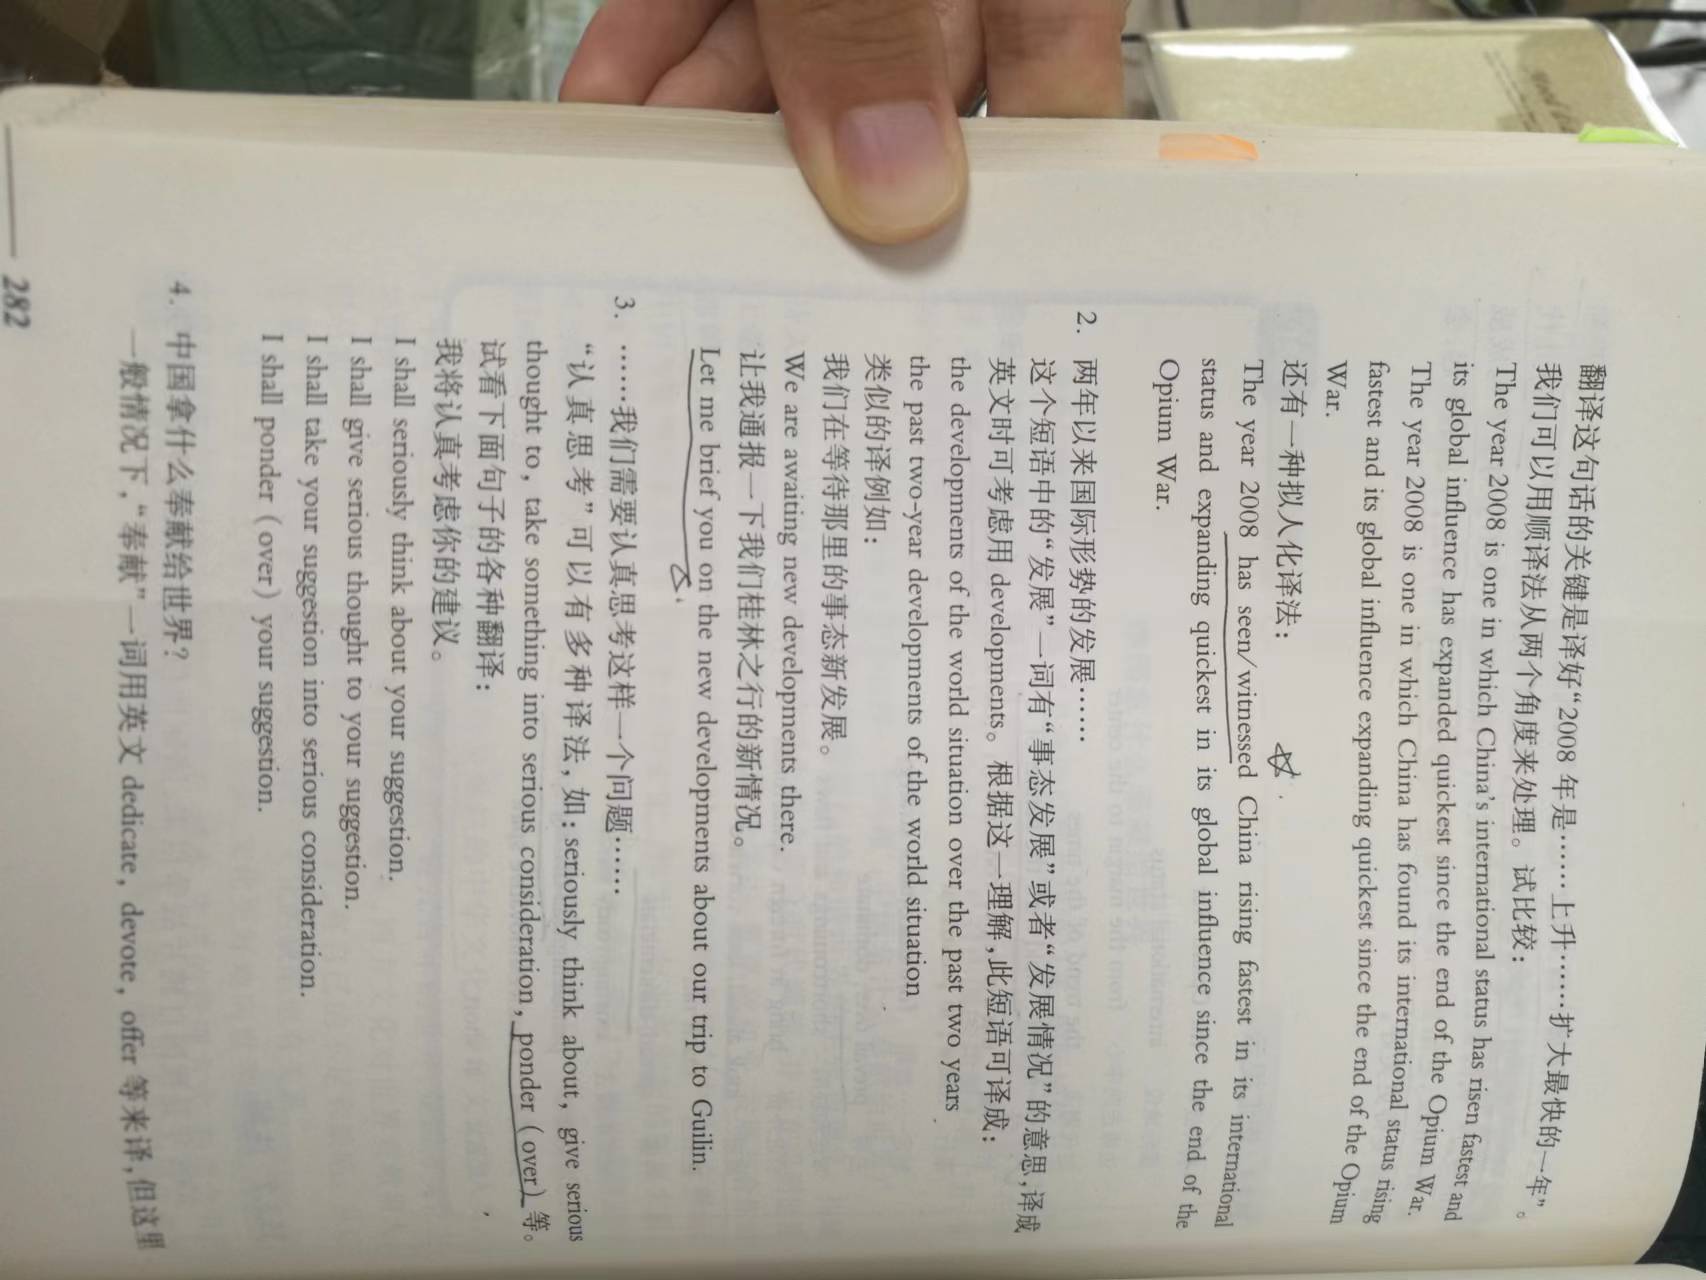 翻译这句话的关键是译好“2008年是……上升……扩大最快的一年”。
我们可以用顺译法从两个角度来处理。试比较：
The year 2008 is one in which China's international status has risen fastest and
its global influence has expanded quickest since the end of the Opium War.
The year 2008 is one in which China has found its international status rising
fastest and its global influence expanding quickest since the end of the Opium
War.
还有一种拟人化译法：
The year 2008 has seen/witnessed China rising fastest in its international
status and expanding quickest in its global influence since the end of the
Opium War.
2. 两年以来国际形势的发展……
这个短语中的“发展”一词有“事态发展”或者“发展情况”的意思，译成
英文时可考虑用 developments。根据这一理解，此短语可译成：
the developments of the world situation over the past two years
the past two-year developments of the world situation
类似的译例如：
我们在等待那里的事态新发展。
We are awaiting new developments there.
让我通报一下我们桂林之行的新情况。
Let me brief you on the new developments about our trip to Guilin.
3. ……我们需要认真思考这样一个问题……
“认真思考”可以有多种译法，如：seriously think about, give serious
thought to, take something into serious consideration, ponder (over) 等。
试看下面句子的各种翻译：
我将认真考虑你的建议。
I shall seriously think about your suggestion.
I shall give serious thought to your suggestion.
I shall take your suggestion into serious consideration.
I shall ponder (over) your suggestion.
4. 中国拿什么奉献给世界？
一般情况下，“奉献”一词用英文 dedicate, devote, offer 等来译，但这里
282